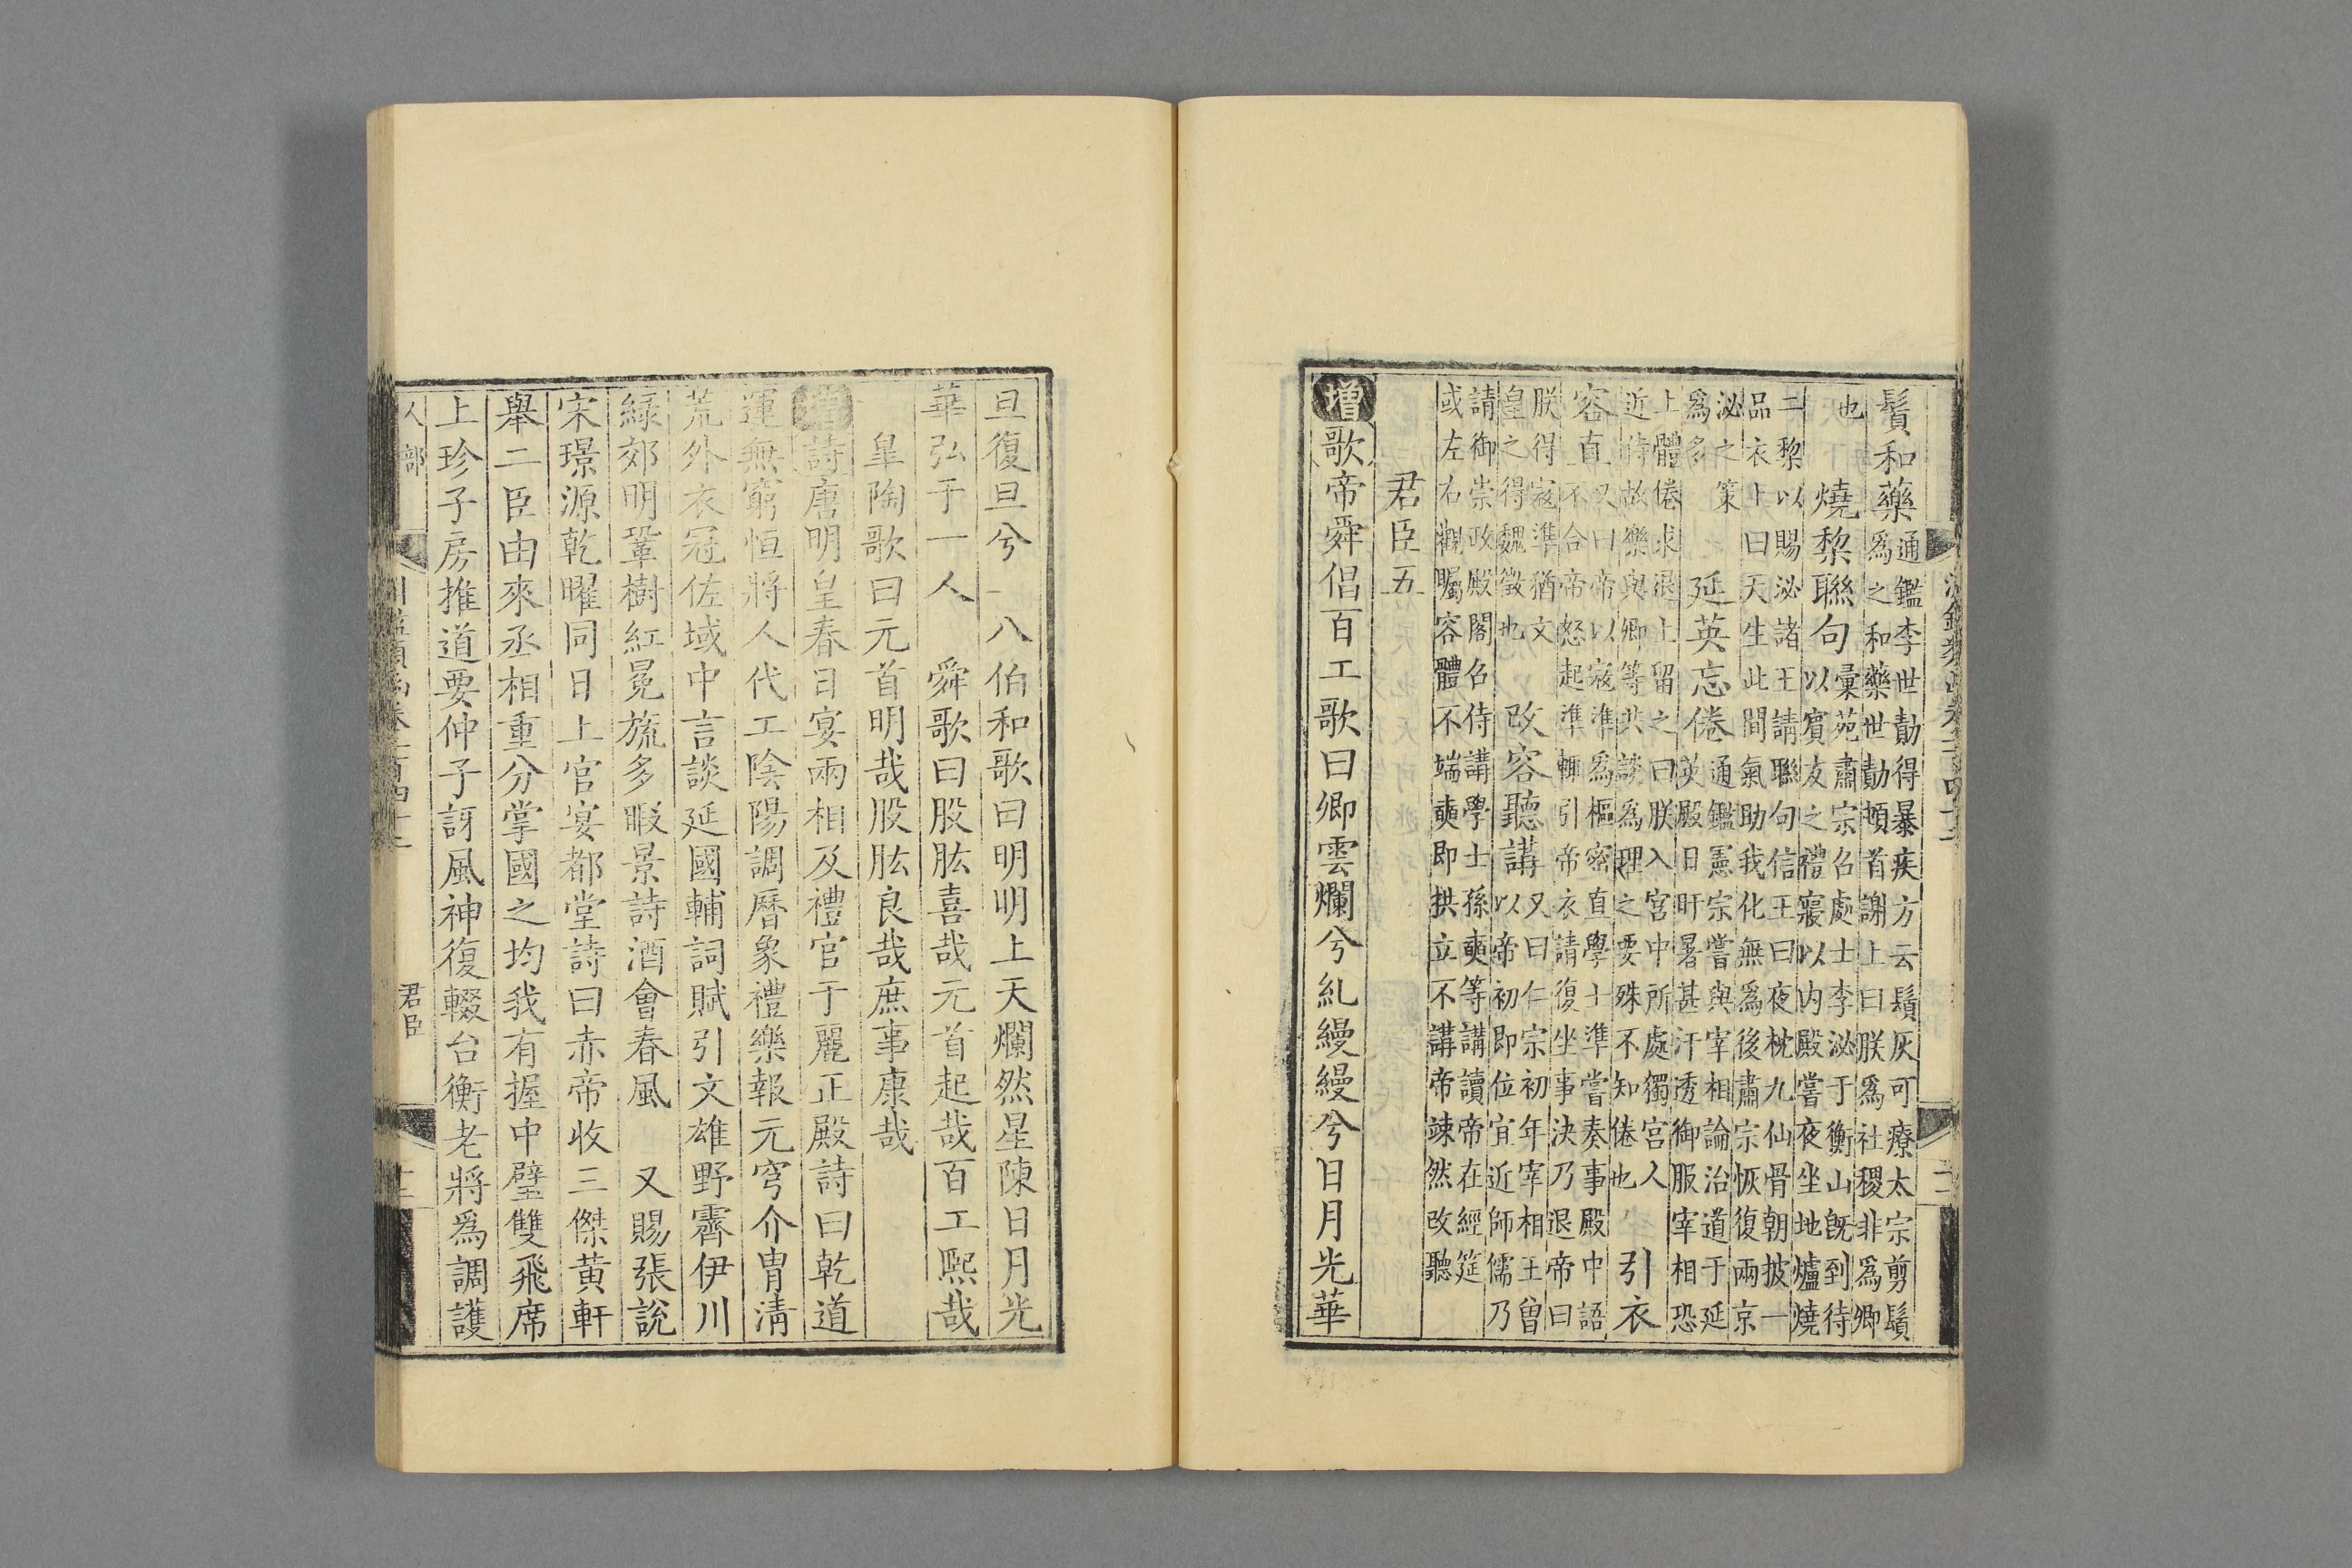 鬢和藥通鑑李世勣得暴疾方云鬚灰可療太宗剪鬚
爲之和藥世勣頓首謝上曰朕爲社稷非爲卿
也燒黎聯句彙苑肅宗召處士李泌于衡山旣到待
以賓友之禮寢以内殿嘗夜坐地爐燒
二黎以賜泌諸王請聯句信王曰夜枕九仙骨朝披一
品衣上曰天生此間氣助我化無爲後肅宗恢復兩京
泌之策
爲多延英忘倦通鑑憲宗嘗與宰相論治道于延
英殿日旰暑甚汗透御服宰相恐
上體倦求退上留之曰朕入宮中所處獨宮人
近侍故樂與卿等共談爲理之要殊不知倦也引衣
容直又曰帝以寇準爲樞密直學士準嘗奏事殿中語
不合帝怒起準輒引帝衣請復坐事決乃退帝曰
朕得寇準猶文
皇之得魏徵也改容聽講又曰仁宗初年宰相王曾
以帝初即位宜近師儒乃
請御崇政殿閣召侍講學士孫奭等講讀帝在經筵
或左右觀矚容體不端奭即拱立不講帝竦然改聽
君臣五
增歌帝舜倡百工歌曰卿雲爛兮糺縵縵兮日月光華
旦復旦兮 八伯和歌曰明明上天爛然星陳日月光
華弘于一人 舜歌曰股肱喜哉元首起哉百工熙哉
臯陶歌曰元首明哉股肱良哉庶事康哉
增詩唐明皇春日宴兩相及禮官于麗正殿詩曰乾道
運無窮恒將人代工陰陽調曆象禮樂報元穹介冑清
荒外衣冠佐域中言談延國輔詞賦引文雄野霽伊川
綠郊明鞏樹紅冕旒多暇景詩酒會春風 又賜張說
宋璟源乾曜同日上官宴都堂詩曰赤帝收三傑黃軒
舉二臣由來丞相重分掌國之均我有握中璧雙飛席
上珍子房推道要仲子訝風神復輟台衡老將爲調護
人部 君臣